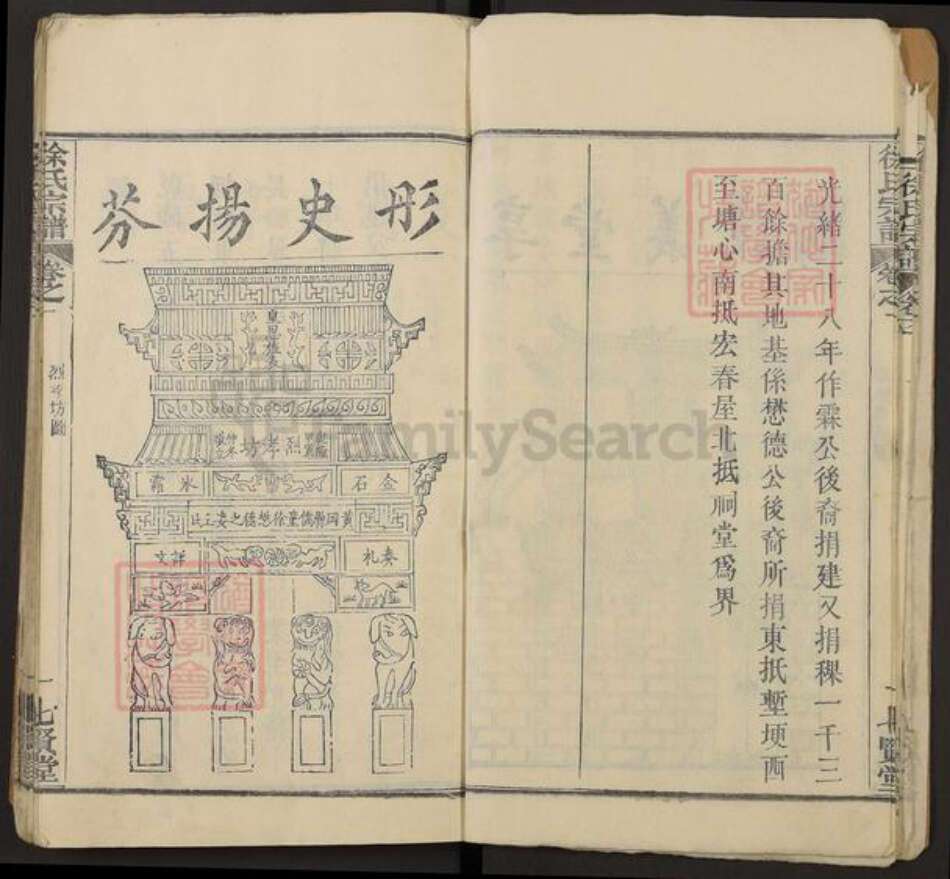 光緒二十八年作霖公後裔捐建又捐稞一千三
百餘擔其地基係懋德公後裔所捐東抵塹埂西
至塘心南抵宏春屋北抵祠堂爲界
徐氏宗譜
卷之
七賢堂
彤史揚芬
烈孝坊
金石
冰霜
黃岡縣儒童徐懋德之妻王氏
秦礼
詳文
徐氏宗譜
卷之一
烈孝坊圖
七賢堂
FamilySearch